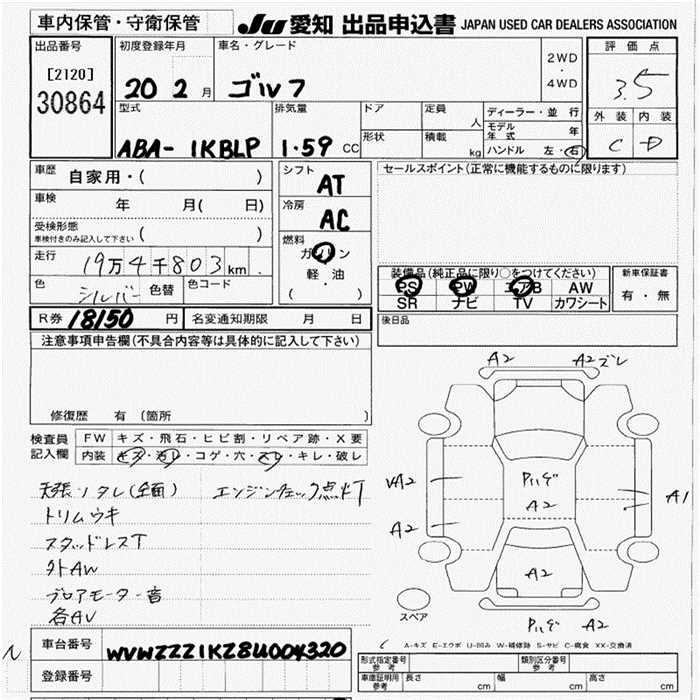 車内保管・守衛保管
JU 愛知 出品申込書 JAPAN USED CAR DEALERS ASSOCIATION
出品番号
[2120]
30864
初度登録年月
20 2 月
車名・グレード
ゴルフ
2WD
・
4WD
評価点
3.5
外装 内装
C D
型式
ABA- 1KBLP
排気量
1.59 CC
ドア
形状
定員
人
積載
kg
ディーラー・並 行
モデル年式 年
ハンドル 左・右
車歴 自家用・( )
車検 年 月( 日)
受検形態
車検付きのみ記入して下さい ( )
走行 19万4千803 km
色 シルバー 色替 色コード
シフト
AT
冷房
AC
燃料
ガソリン
軽・油
( )
セールスポイント(正常に機能するものに限ります)
装備品(純正品に限り○をつけてください)
PS PW エアB AW
SR ナビ TV カワシート
新車保証書
有・無
後日品
R券 18150 円 名変通知期限 月 日
注意事項申告欄(不具合内容等は具体的に記入して下さい)
修復歴 有 (箇所 )
検査員記入欄
FW キズ・飛石・ヒビ割・リペア跡・X要
内装 キズ・汚レ・コゲ・穴・スレ・キレ・破レ
天張リタレ(全面) エンジンチェック点灯
トリムウキ
スタッドレスT
外AW
ブロアモーター音
各AV
A2 A2ズレ
A2
A2
A1
A2
A2
スペア
A2
A-キズ E-エクボ U-凹み W-補修跡 S-サビ C-腐食 XX-交換済
車台番号 WVWZZZ1KZ8U004320
登録番号
形式指定番号 参考
類別区分番号 参考
車庫証明用 参考 長さ cm 幅 cm 高さ cm